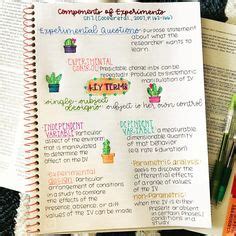 Components of Experiments
Experimental Question: Purpose statement
about what the
researcher wants to
learn
EXPERIMENTAL
CONTROL:
Predictable change in bx can be
repeatedly produced by systematic
manipulation of IV
KEY TERMS
single-subject
designs: subject is her own control
INDEPENDENT
VARIABLE: particular
aspect of the
environment
that is manipulated
to determine the
effect on the DV
DEPENDENT
VARIABLE: a measurable
dimensionable quantity
of that behavior
Experimental
design:
Particular
arrangement of conditions
in a study to compare
the effects of the
presence, absence, or diff
values of the IV can be made
parametric analysis:
seeks to discover
the differential effects
of a range of values
of the IV
non-
may be apparent
or absent in
certain
conditions
in a study